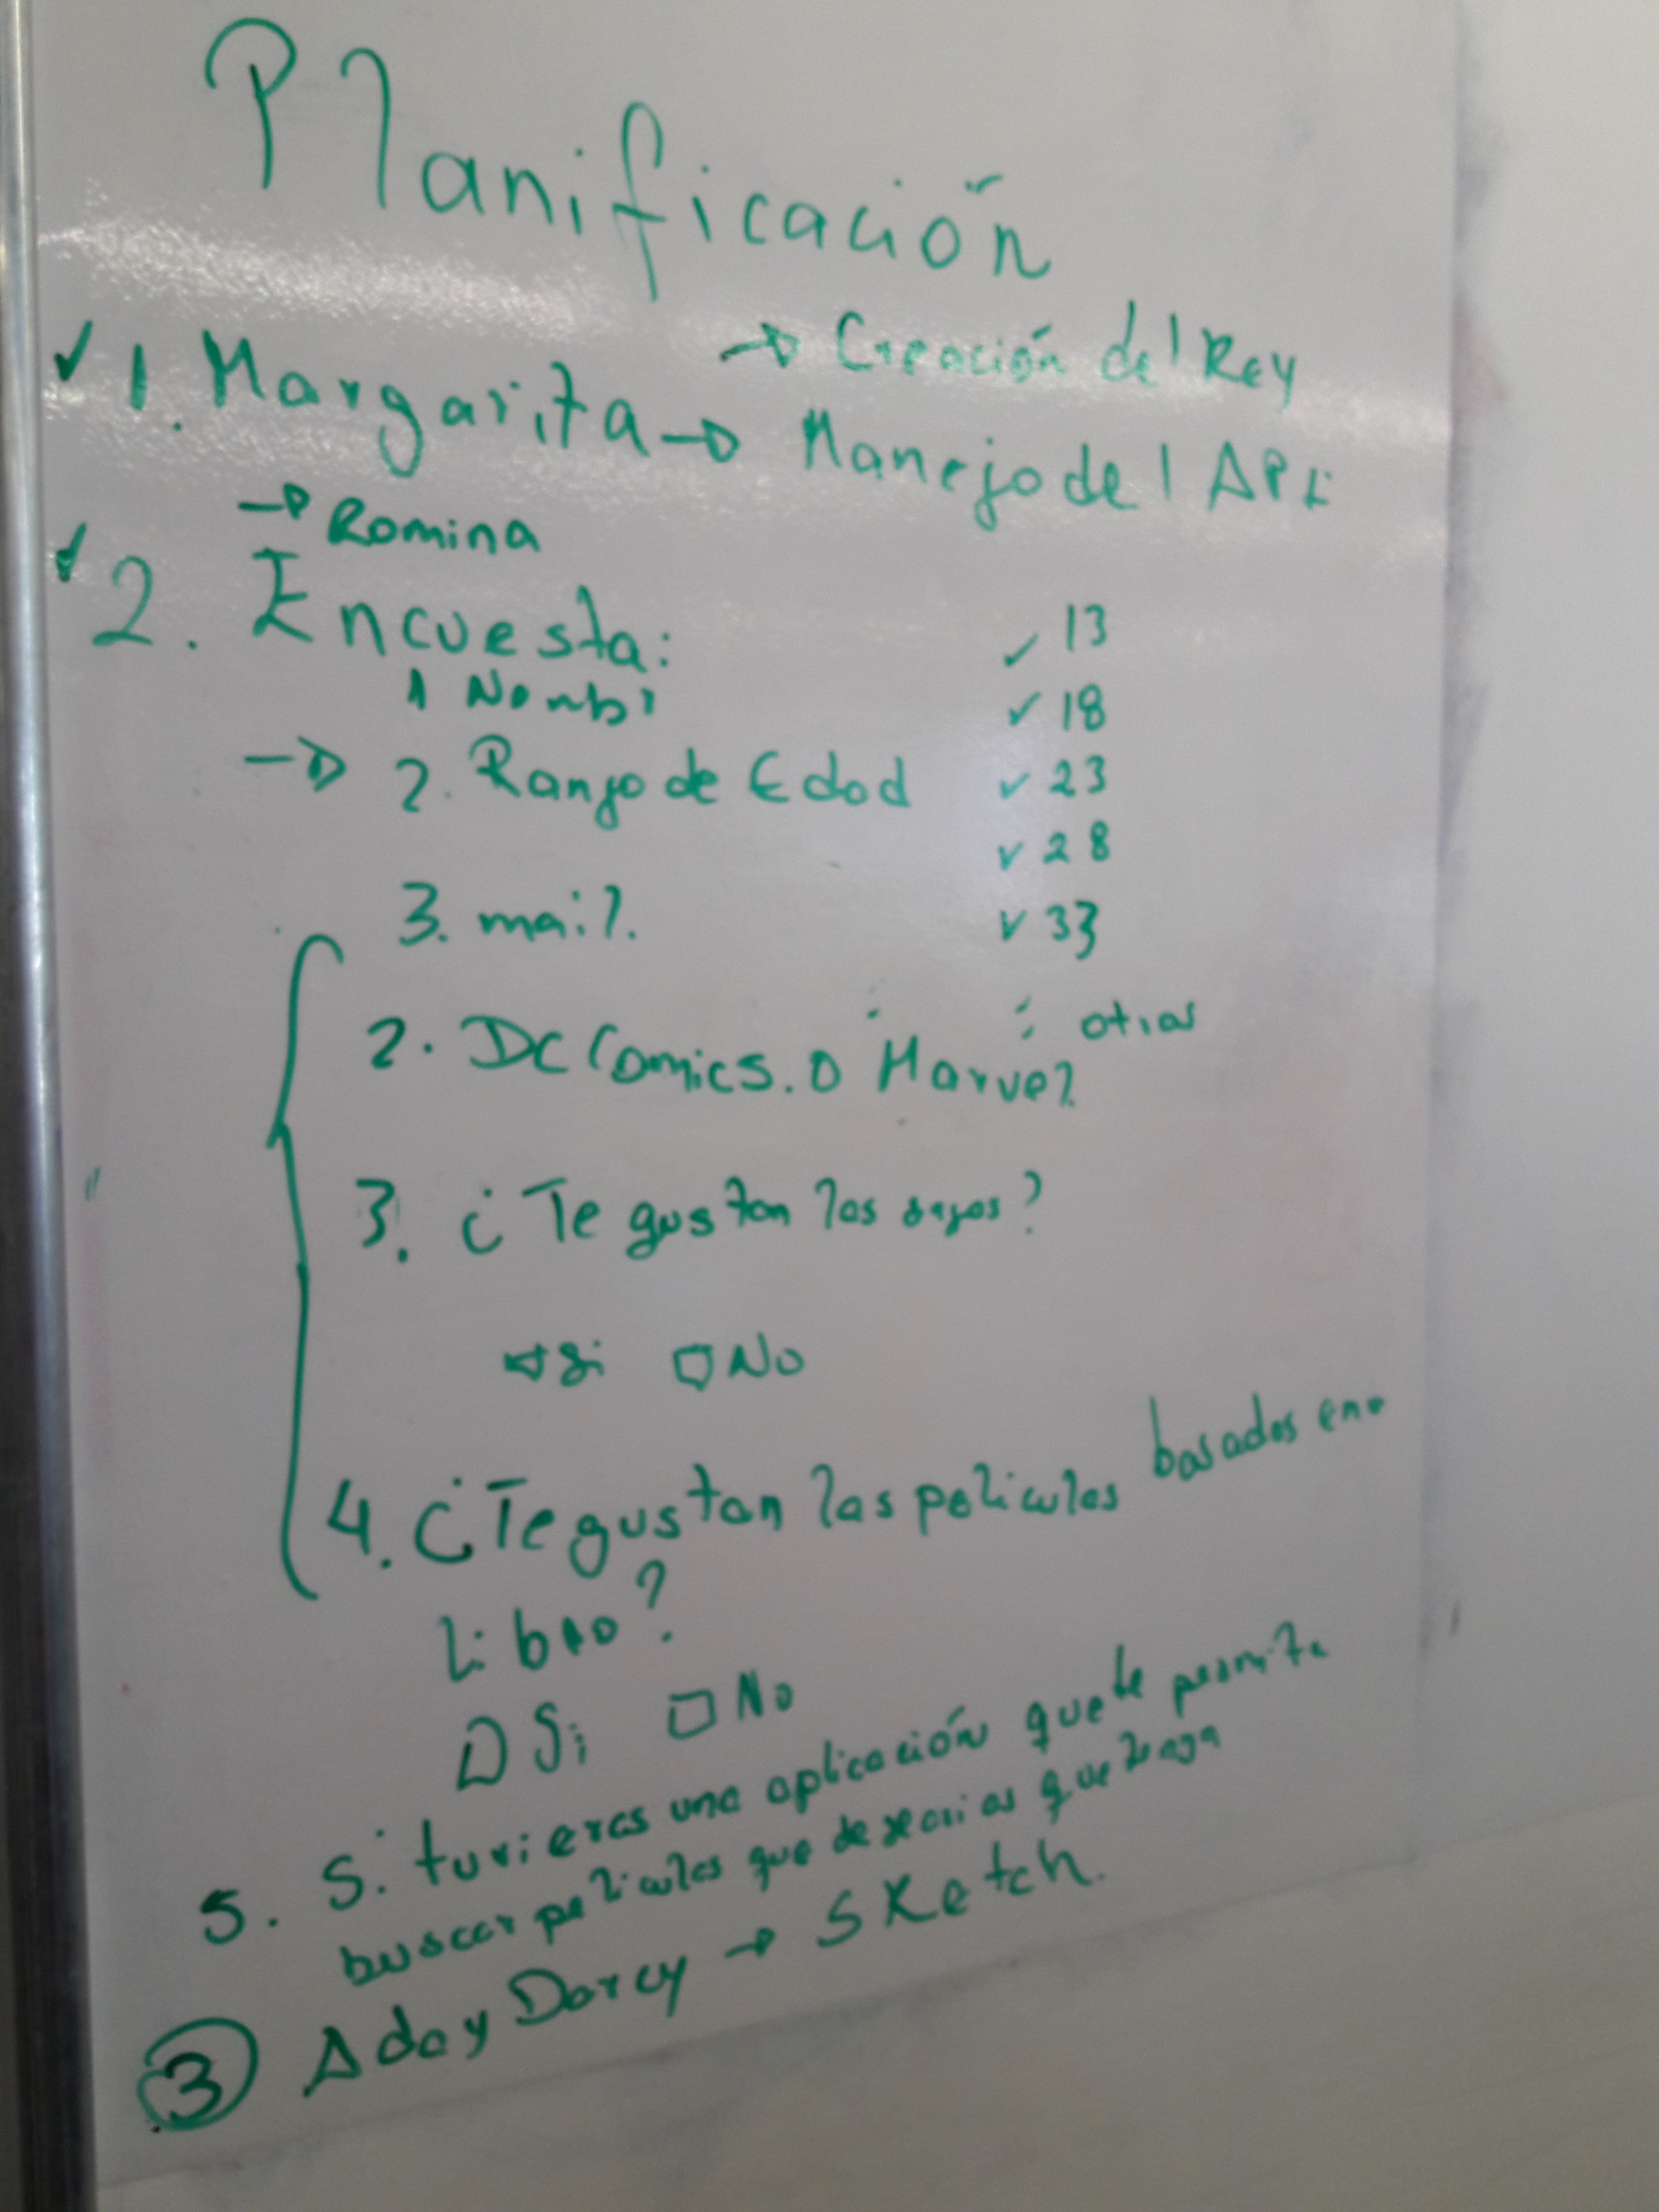 Planificación
→ Creación del Rey
✓ 1. Margarita → Manejo del API
→ Romina
✓ 2. Encuesta:
1 Nombr
→ 2. Rango de Edad
✓ 13
✓ 18
✓ 23
✓ 28
✓ 33
3. mail.
2. DC Comics. o Marvel otras
3. ¿Te gustan las sagas?
□ Si □ No
4. ¿Te gustan las peliculas basados en
Libro?
□ Si □ No
5. Si tuvieras una aplicación que te permita
buscar peliculas que desearias que tenga
③ Ada y Darcy → Sketch.